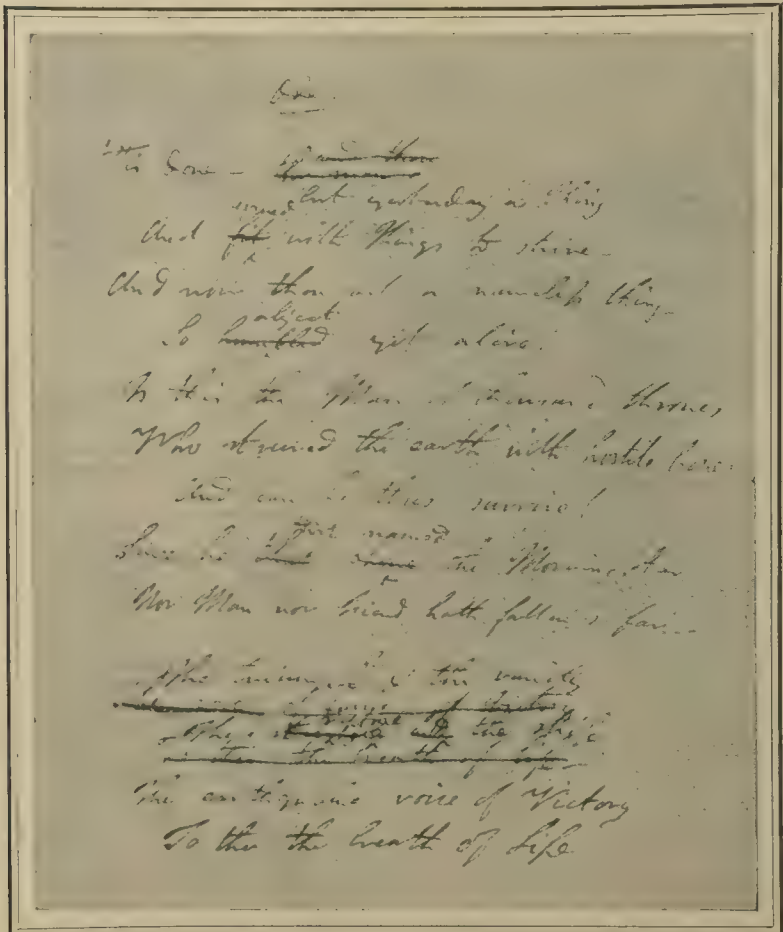 Ode.
'Tis done —
but yesterday a King
armed
And with Kings to strive —
And now thou art a nameless thing
abject
So humbled yet alive!
Is this the Man of thousand thrones,
Who strewed the earth with hostile bones
And can he thus survive!
named
Since he the Morning star
Nor Man nor fiend hath fallen so far.
The triumph & the vanity
rapture
The the strife
the breath of life
The earthquake voice of Victory
To thee the breath of life